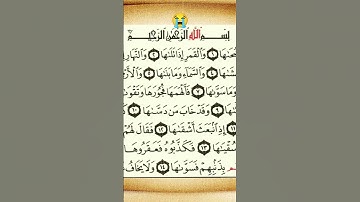 بِسْمِ ٱللَّهِ ٱلرَّحْمَٰنِ ٱلرَّحِيمِ
وَٱلْقَمَرِ إِذَا تَلَىٰهَا ٢ وَٱلنَّهَارِ
وَٱلسَّمَآءِ وَمَا بَنَىٰهَا ٥ وَٱلْأَرْ
وَمَا سَوَّىٰهَا ٧ فَأَلْهَمَهَا فُجُورَهَا وَتَقْوَ
٩ وَقَدْ خَابَ مَن دَسَّىٰهَا ١٠
١١ إِذِ ٱنۢبَعَثَ أَشْقَىٰهَا ١٢ فَقَالَ لَهُمْ
سُقْيَٰهَا ١٣ فَكَذَّبُوهُ فَعَقَرُوهَا
بِذَنۢبِهِمْ فَسَوَّىٰهَا ١٤ وَلَا يَخَافُ